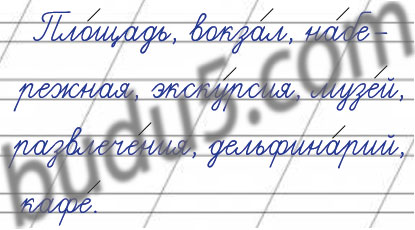 Пло́щадь, вокза́л, на́бе-
режная, экску́рсия, музе́й,
развлече́ния, дельфина́рий,
кафе́.
budu5.com